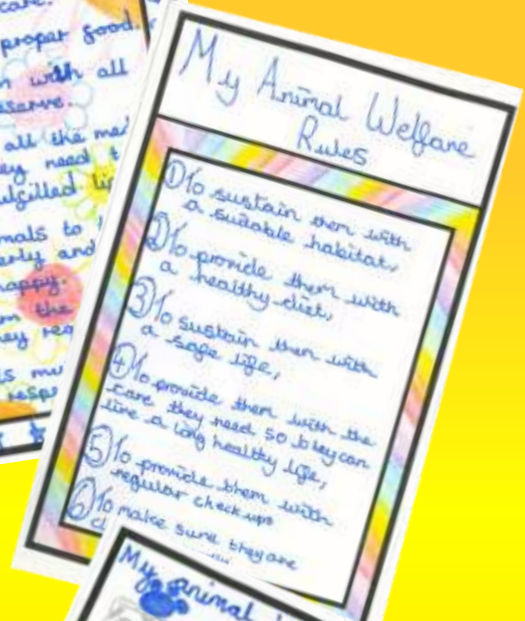 care.
proper food.
with all
eserve.
all the me
ey need t
ulfilled li
mals to
erly and
happy.
m the
hey req
is mu
resp
My Animal Welfare
Rules
① To sustain them with
a suitable habitat,
② To provide them with
a healthy diet,
③ To sustain them with
a safe life,
④ To provide them with the
care they need so they can
live a long healthy life,
⑤ To provide them with
regular check ups
⑥ To make sure they are
My animal